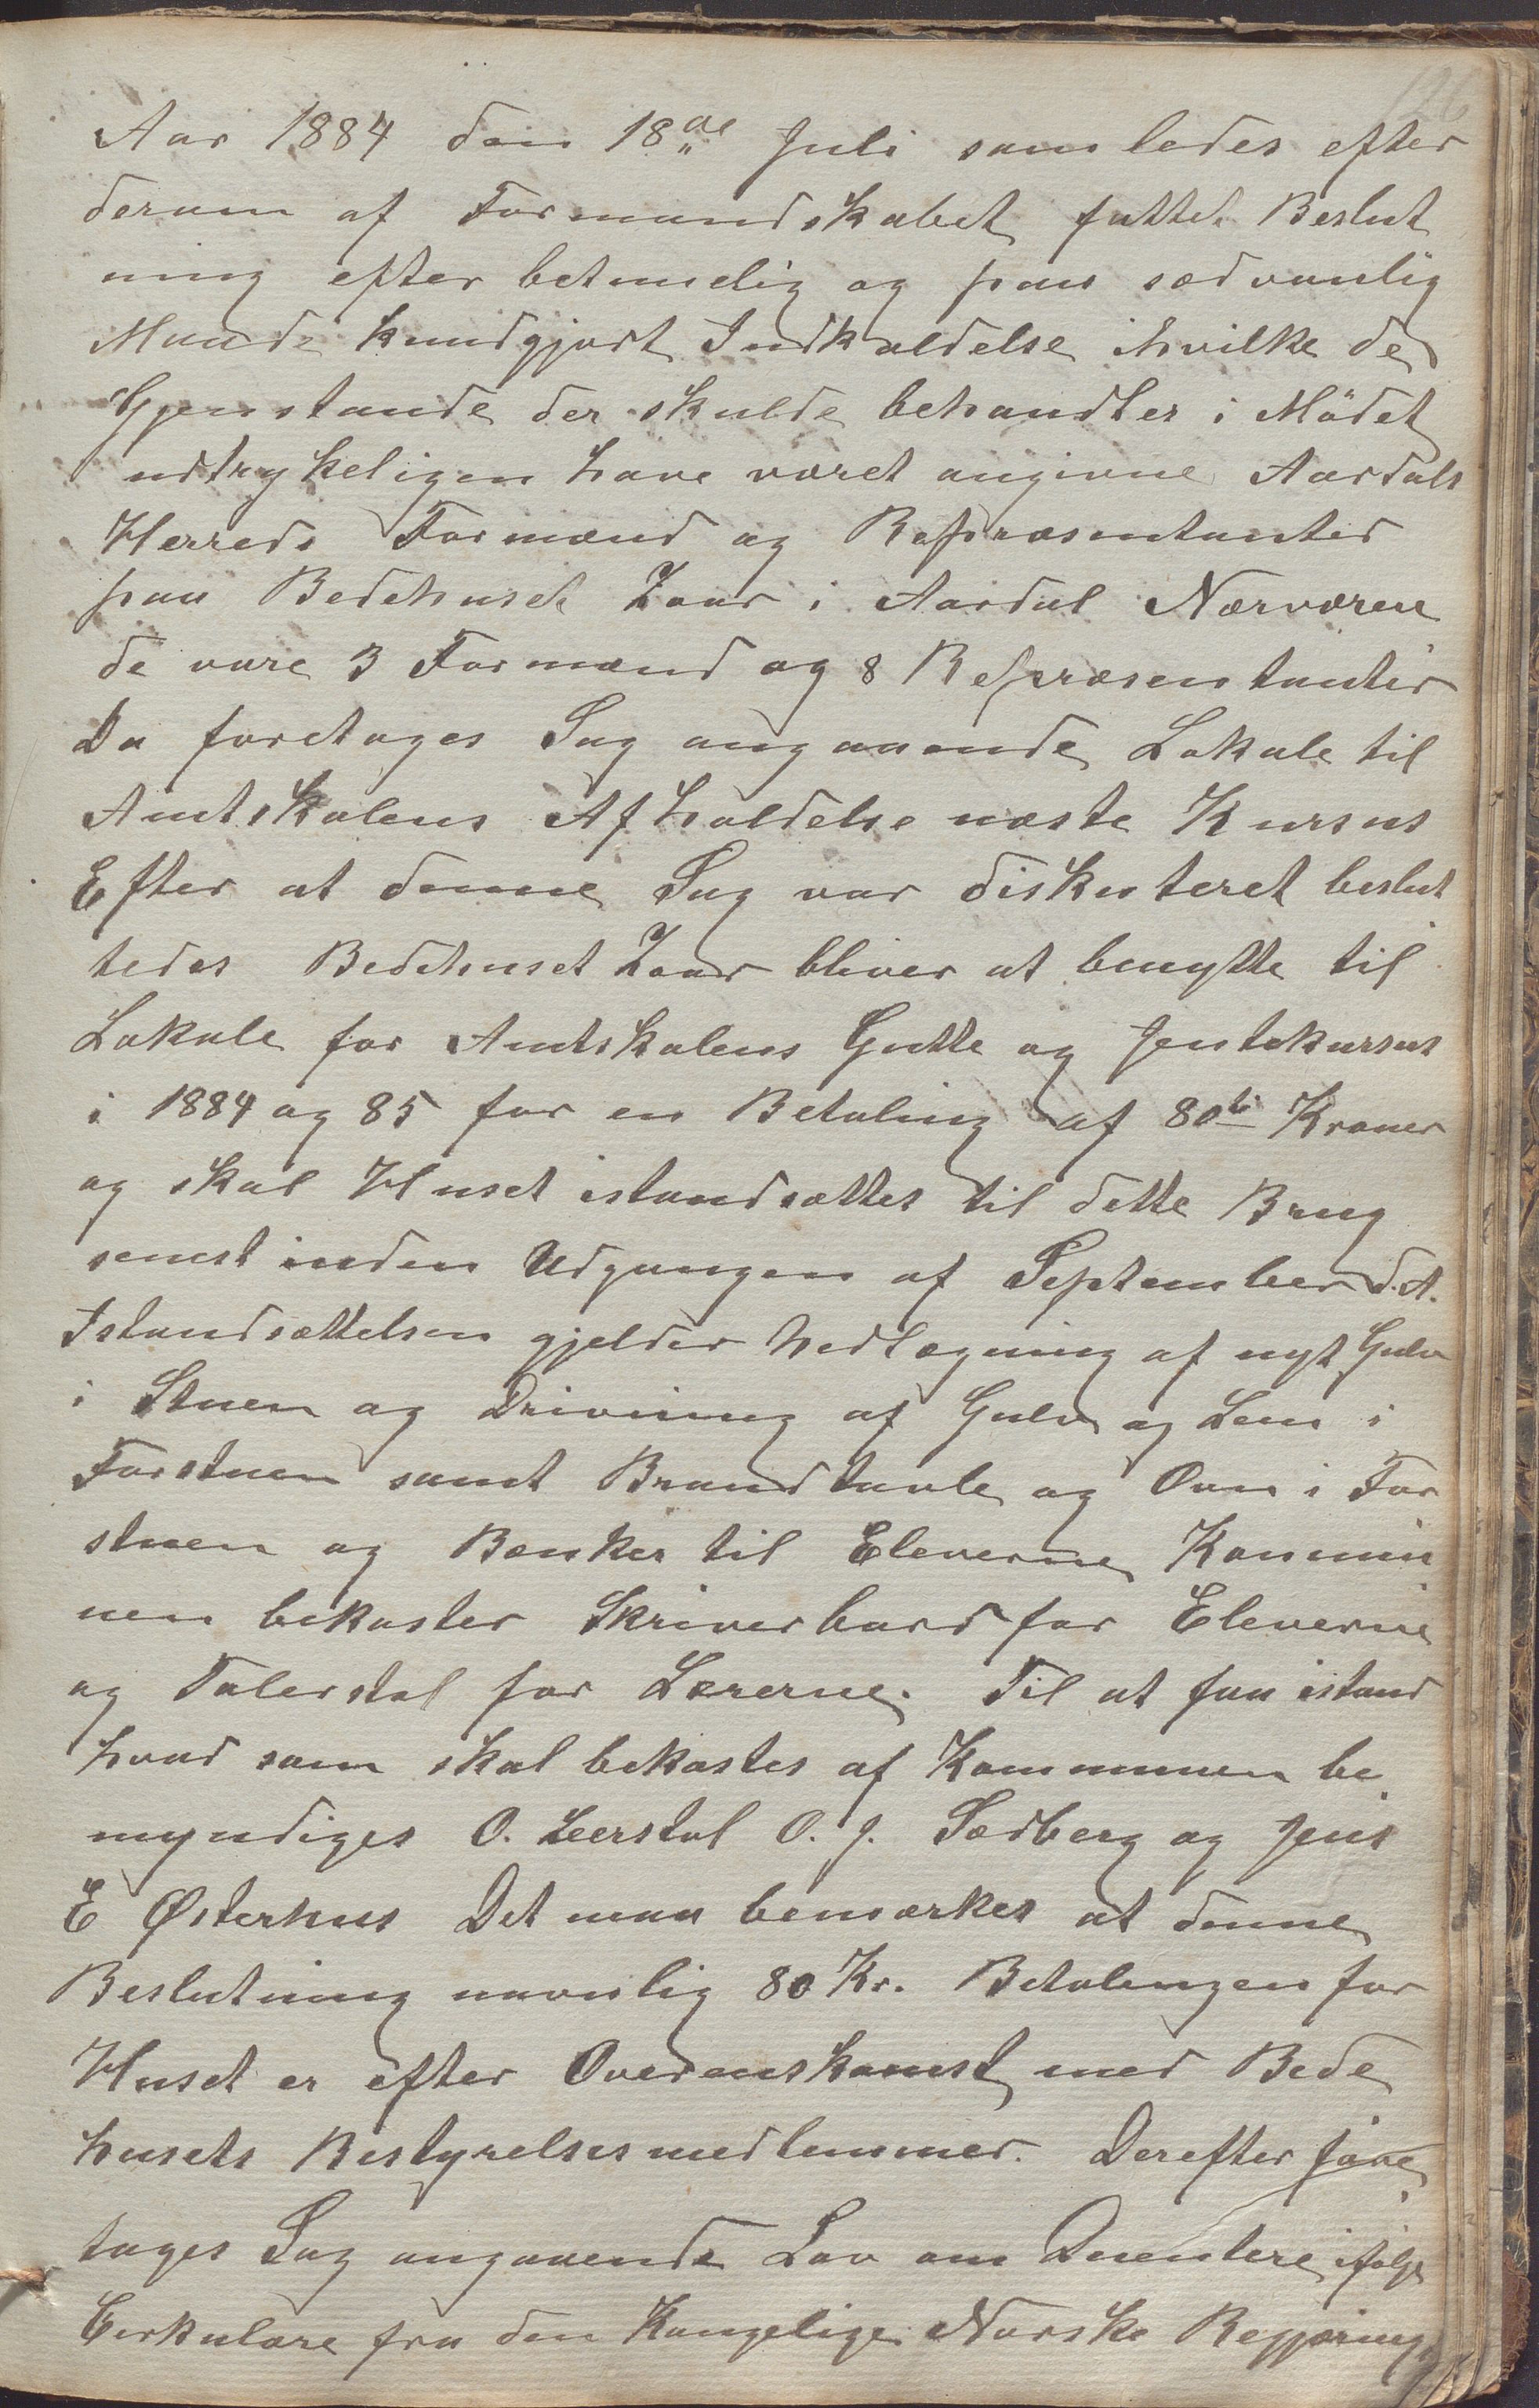 126
Aar 1884 den 18de Juli samledes efter
derom af Formandskabet fattet Beslut
ning efter betimelig og paa sædvanlig
Maade kundgjort Indkaldelse i hvilke de
Gjenstande der skulde behandles i Mödet
udtrykeligen have været angivne Aardals
Herreds Formænd og Repræsentanter
paa Bedehuset Zoar i Aardal Nærværen
de vare 3 Formænd og 8 Repræsentanter
Da foretoges Sag angaaende Lokale til
Amtskolens Afholdelse næste Kursus
Efter at denne Sag var diskuteret beslut
tedes Bedehuset Zoar bliver at benytte til
Lokale for Amtskolens Gutte og Jentekursus
i 1884 og 85 for en Betaling af 80ti Kroner
og skal Huset istandsættes til dette Brug
senest inden Udgangen af September d.A.
Istandsættelsen gjelder Nedlægning af nyt Gulv
i Stuen og Drivning af Gulv og Lem i
Forstuen samt Brandtavle og Ovn i For
stuen og Bænker til Eleverne Kommu
nen bekoster Skriverbord for Eleverne
og Talerstol for Lærerne. Til at faa istand
hvad som skal bekostes af Kommunen be
myndiges O. Leerstol O. J. Sedberg og Jens
E Østerhus Det maa bemærkes at denne
Beslutning navnlig 80 Kr. Betalingen for
Huset er efter Overenskomst med Bede
husets Bestyrelsesmedlemmer. Derefter fore
toges Sag angaaende Lov om Qventere ifølge
Cirkulære fra den Kongelige Norske Regjerings